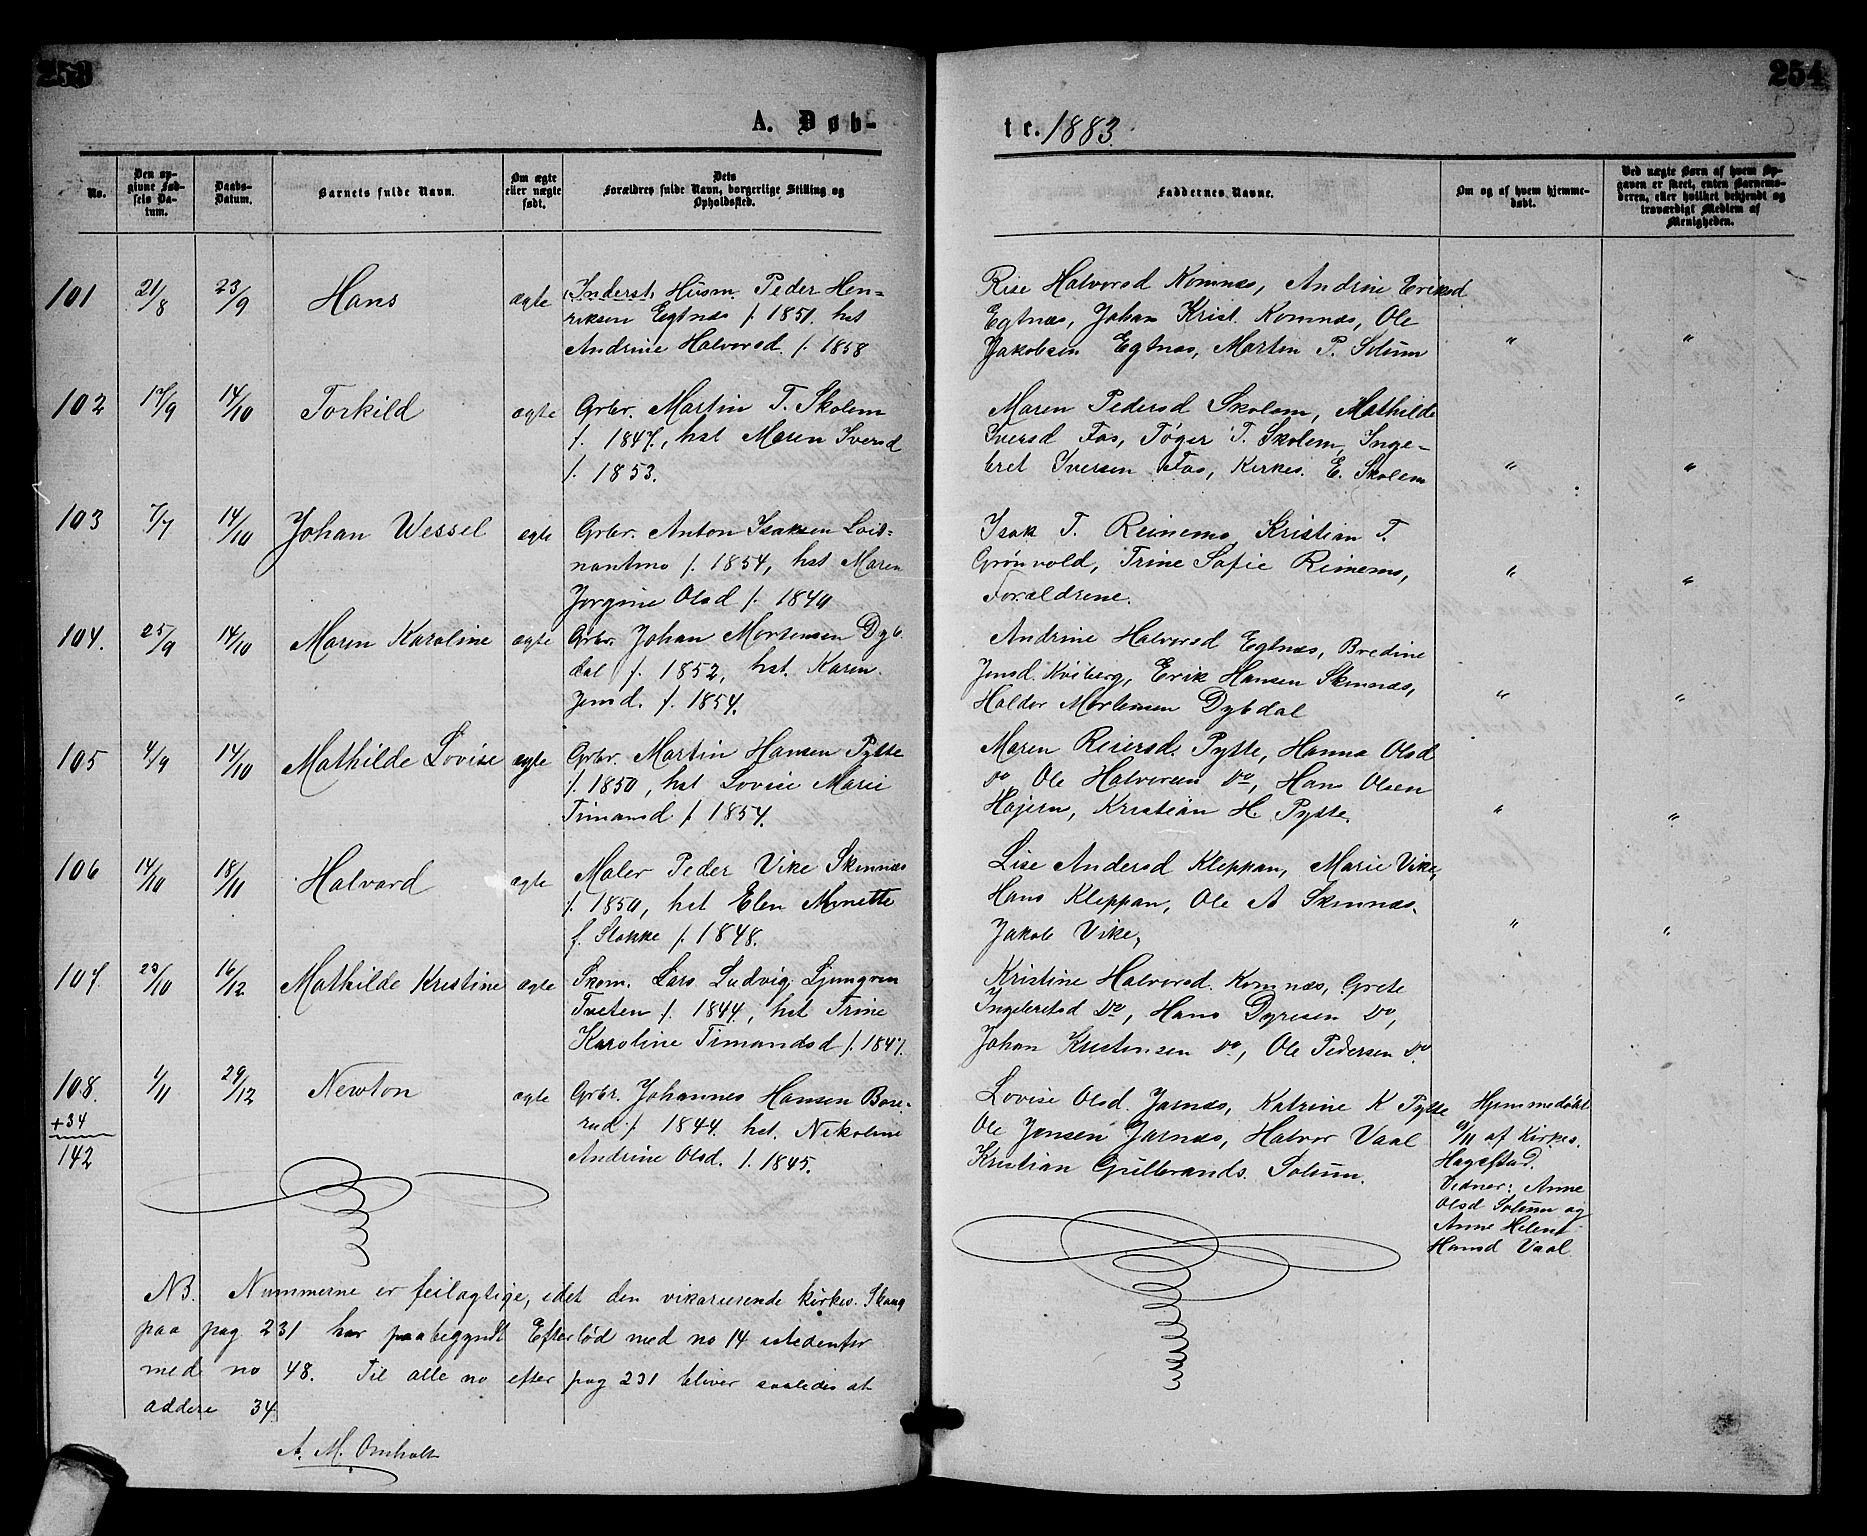 253
A. Døb-
No.
Den op-
givne Fød-
sels Da-
tum.
Daabs-
Datum.
Barnets fulde Navn.
Om ægte
eller uægte
født.
Dets
Forældres fulde Navn, borgerlige Stilling og
Opholdssted.
101 21/8 23/9 Hans ægte Inderst, Husm. Peder Hen-
riksen Egtnæs f. 1851. hst
Andrine Halvorsd. f. 1858
102 17/9 14/10 Torkild ægte Grbr. Martin T. Skolem
f. 1847, hst Maren Iversd
f. 1853.
103 7/7 14/10 Johan Wessel ægte Grbr. Anton Isaksen Loit-
nantmo f. 1854, hst Maren
Jorgine Olsd f. 1840
104. 25/9 14/10 Maren Karoline ægte Grbr. Johan Mortensen Dyb
dal f. 1852, hst. Karen
Jensd. f. 1854.
105 4/9 14/10 Mathilde Lovise ægte Grbr. Martin Hansen Pytte
f. 1850, hst Lovise Marie
Timansd f. 1854.
106 14/10 18/11 Halvard ægte Maler Peder Vike Skinnæs
f. 1850, hst Elen Mynette
f. Stokke f. 1848.
107. 23/10 16/12 Mathilde Kristine ægte Skom. Lars Ludvig Ljungren
Tveten f. 1844, hst Trine
Karoline Timandsd f. 1847.
108. 1/11 29/12 Newton ægte Grbr. Johannes Hansen Bose-
rud f. 1844. hst. Nikoline
Andrine Olsd. f. 1845.
+34
142
NB. Nummerne er feilagtige, idet den vikarierende kirkes. Skaug
paa pag 231 har paabegyndt Efterlød med no 14 istedenfor
med no 48. Til alle no efter pag 231 bliver saaledes at
addere 34
A. M. Omholt
254
te. 1883.
Faddernes Navne.
Om og af hvem hjemme-
døbt.
Ved uægte Børn af hvem Op-
gaven er skeet, enten Barnemo-
deren, eller hvilket bekjendt og
troværdigt Medlem af
Menigheden.
Rise Halvorsd Komnæs, Andrine Eriksd
Egtnæs, Johan Krist. Komnæs, Ole
Jakobsen Egtnæs, Martin P. Solum " "
Maren Pedersd Skolem, Mathilde
Iversd Fos, Tøger T. Skolem, Inge-
bret Iversen Fos, Kirkes. E. Skolem " "
Isak T. Reinemo, Kristian T.
Grønvold, Trine Sofie Reinemo, " "
Forældrene.
Andrine Halvorsd Egtnæs, Bredine
Jensd. Kviberg, Erik Hansen Skinnæs,
Haldor Mortensen Dybdal " "
Maren Reiersd. Pytte, Hanna Olsd
do, Ole Halvorsen do, Hans Olsen
Højern, Kristian H. Pytte. " "
Lise Andersd Kleppan, Marie Vike,
Hans Kleppan, Ole A Skinnæs,
Jakob Vike, " "
Kristine Halvorsd. Komnæs, Grete
Ingebretsd do, Hans Dyresen do,
Johan Kristensen do, Ole Pedersen do
Lovise Olsd. Jarnæs, Katrine K Pytte
Ole Jensen Jarnæs, Halvor Vaal
Kristian Gulbrands. Solum.
Hjemmedøbt
/11 af Kirkes.
Hagestad.
Vidner: Anne
Olsd Solum og
Anne Helene
Hansd Vaal